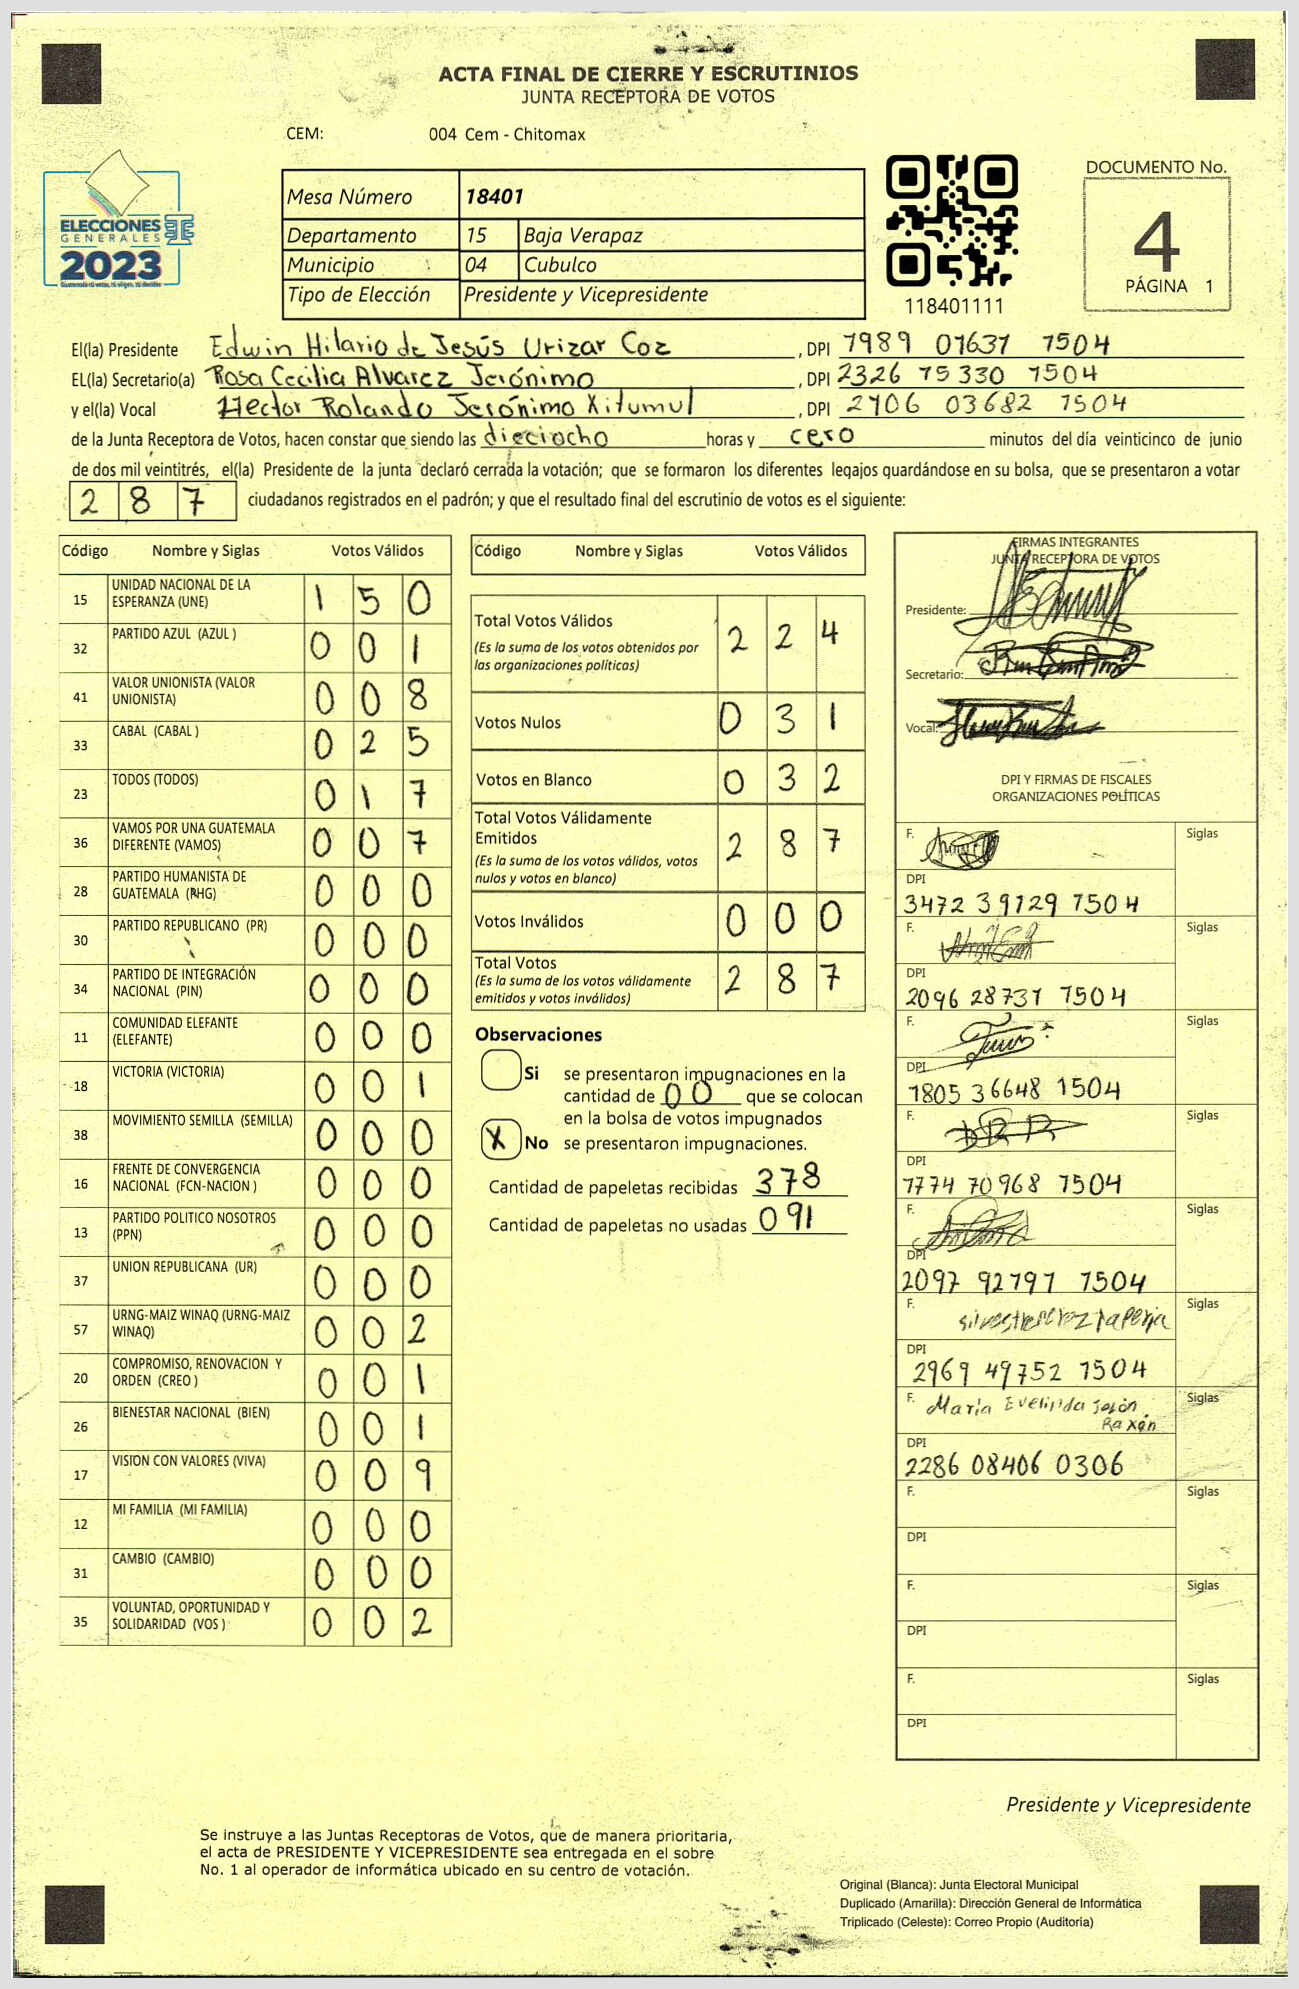 ACTA FINAL DE CIERRE Y ESCRUTINIOS
JUNTA RECEPTORA DE VOTOS
CEM: 004 Cem - Chitomax
ELECCIONES
GENERALES
2023
Mesa Número 18401
Departamento 15 Baja Verapaz
Municipio 04 Cubulco
Tipo de Elección Presidente y Vicepresidente
118401111
DOCUMENTO No.
4
PÁGINA 1
El(la) Presidente Edwin Hilario de Jesús Urizar Coz, DPI 1989 01631 1504
EL(la) Secretario(a) Rosa Cecilia Alvarez Jerónimo, DPI 2326 75330 1504
y el(la) Vocal Hector Rolando Jerónimo Xitumul, DPI 2106 03682 1504
de la Junta Receptora de Votos, hacen constar que siendo las dieciocho horas y cero minutos del día veinticinco de junio
de dos mil veintitrés, el(la) Presidente de la junta declaró cerrada la votación; que se formaron los diferentes legajos guardándose en su bolsa, que se presentaron a votar
287 ciudadanos registrados en el padrón; y que el resultado final del escrutinio de votos es el siguiente:
Código Nombre y Siglas Votos Válidos
15 UNIDAD NACIONAL DE LA ESPERANZA (UNE) 1 5 0
32 PARTIDO AZUL (AZUL ) 0 0 1
41 VALOR UNIONISTA (VALOR UNIONISTA) 0 0 8
33 CABAL (CABAL ) 0 2 5
23 TODOS (TODOS) 0 1 7
36 VAMOS POR UNA GUATEMALA DIFERENTE (VAMOS) 0 0 7
28 PARTIDO HUMANISTA DE GUATEMALA (PHG) 0 0 0
30 PARTIDO REPUBLICANO (PR) 0 0 0
34 PARTIDO DE INTEGRACIÓN NACIONAL (PIN) 0 0 0
11 COMUNIDAD ELEFANTE (ELEFANTE) 0 0 0
18 VICTORIA (VICTORIA) 0 0 1
38 MOVIMIENTO SEMILLA (SEMILLA) 0 0 0
16 FRENTE DE CONVERGENCIA NACIONAL (FCN-NACION ) 0 0 0
13 PARTIDO POLITICO NOSOTROS (PPN) 0 0 0
37 UNION REPUBLICANA (UR) 0 0 0
57 URNG-MAIZ WINAQ (URNG-MAIZ WINAQ) 0 0 2
20 COMPROMISO, RENOVACION Y ORDEN (CREO ) 0 0 1
26 BIENESTAR NACIONAL (BIEN) 0 0 1
17 VISION CON VALORES (VIVA) 0 0 9
12 MI FAMILIA (MI FAMILIA) 0 0 0
31 CAMBIO (CAMBIO) 0 0 0
35 VOLUNTAD, OPORTUNIDAD Y SOLIDARIDAD (VOS ) 0 0 2
Código Nombre y Siglas Votos Válidos
Total Votos Válidos 2 2 4
(Es la suma de los votos obtenidos por
las organizaciones políticas)
Votos Nulos 0 3 1
Votos en Blanco 0 3 2
Total Votos Válidamente
Emitidos 2 8 7
(Es la suma de los votos válidos, votos
nulos y votos en blanco)
Votos Inválidos 0 0 0
Total Votos 2 8 7
(Es la suma de los votos válidamente
emitidos y votos inválidos)
Observaciones
Si se presentaron impugnaciones en la
cantidad de 00 que se colocan
en la bolsa de votos impugnados
X No se presentaron impugnaciones.
Cantidad de papeletas recibidas 378
Cantidad de papeletas no usadas 091
FIRMAS INTEGRANTES
JUNTA RECEPTORA DE VOTOS
Presidente:
Secretario:
Vocal:
DPI Y FIRMAS DE FISCALES
ORGANIZACIONES POLÍTICAS
F. Siglas
DPI
3472 39129 1504
F. Siglas
DPI
2096 28731 1504
F. Siglas
DPI
1805 36648 1504
F. Siglas
DPI
1774 70968 1504
F. Siglas
DPI
2097 92797 1504
F. Siglas
DPI
2969 49752 1504
F. Maria Evelinda Siglas
DPI
2286 08406 0306
F. Siglas
DPI
F. Siglas
DPI
F. Siglas
DPI
Presidente y Vicepresidente
Se instruye a las Juntas Receptoras de Votos, que de manera prioritaria,
el acta de PRESIDENTE Y VICEPRESIDENTE sea entregada en el sobre
No. 1 al operador de informática ubicado en su centro de votación.
Original (Blanca): Junta Electoral Municipal
Duplicado (Amarilla): Dirección General de Informática
Triplicado (Celeste): Correo Propio (Auditoría)